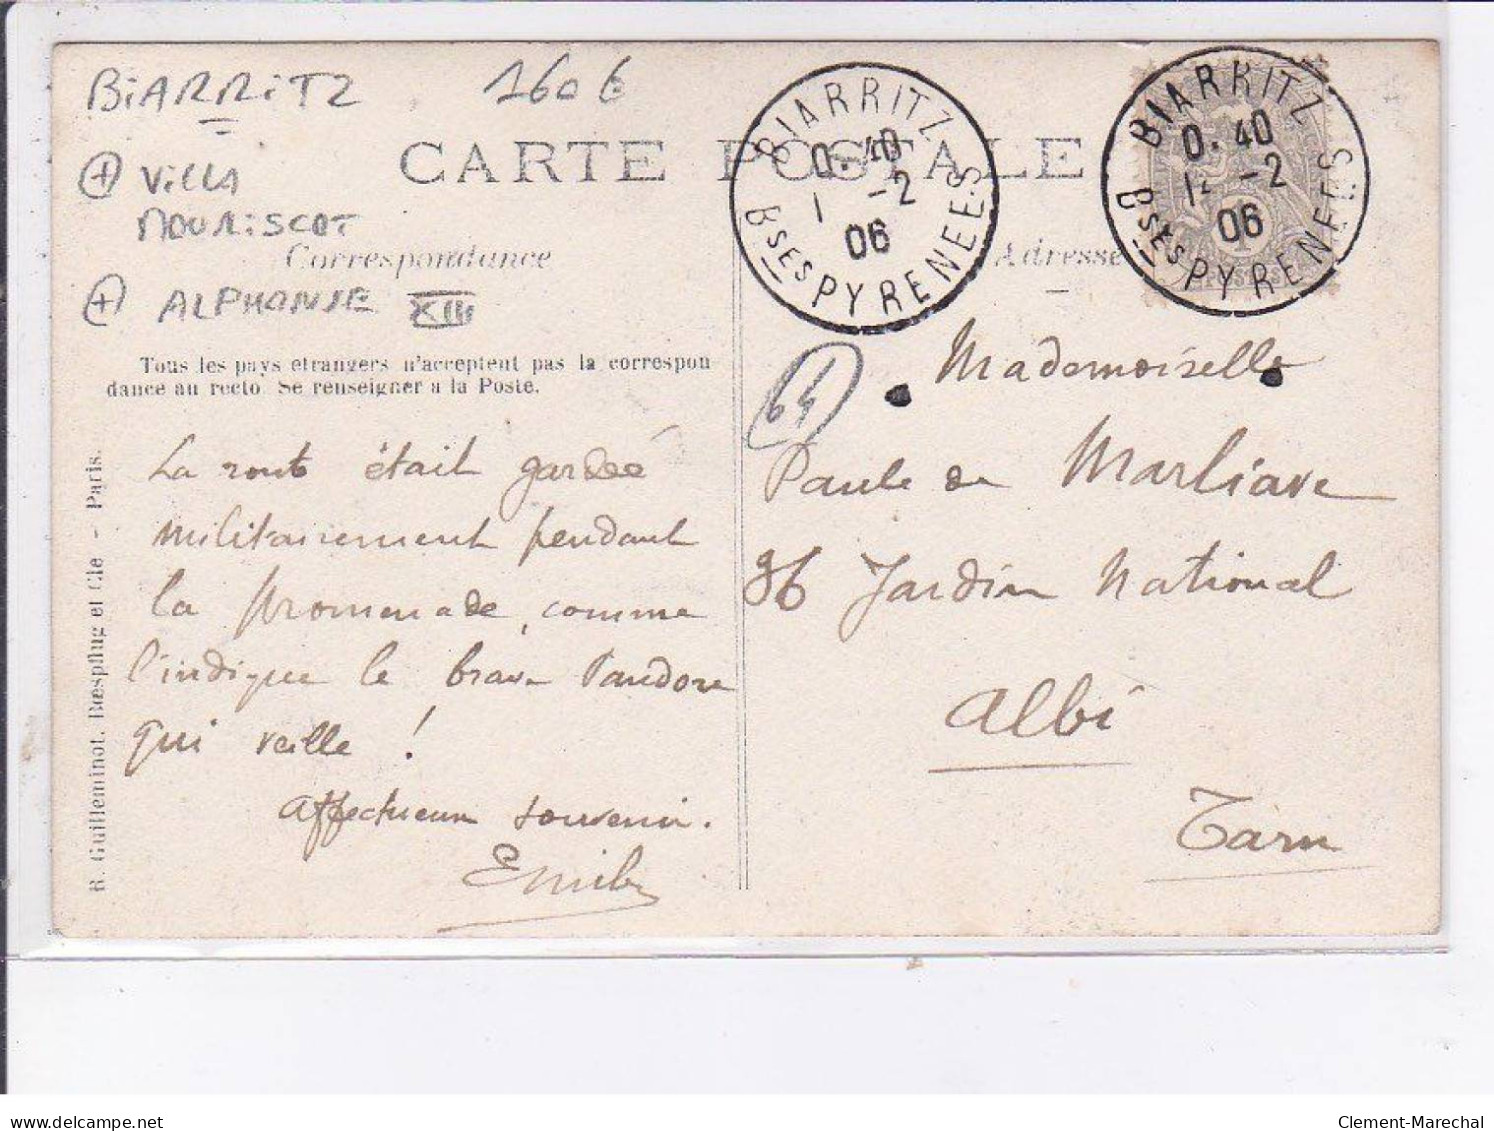 BIARRITZ 160 €
+ VILLA
MOURISCOT
+ ALPHONSE XIII
CARTE POSTALE
Correspondance
Adresse
BIARRITZ
0.40
1 -2
06
Bses PYRENEES
BIARRITZ
0.40
1 -2
06
Bses PYRENEES
Tous les pays étrangers n'acceptent pas la correspon
dance au recto. Se renseigner à la Poste.
R. Guilleminot, Bœspflug et Cie - Paris.
64
La route était gardée
militairement pendant
la promenade, comme
l'indique le brave Pandore
qui veille !
Affectueux souvenir.
Emile
Mademoiselle
Paule de Marliave
36 Jardin National
Albi
Tarn
Clement-Marechal
delcampe.net